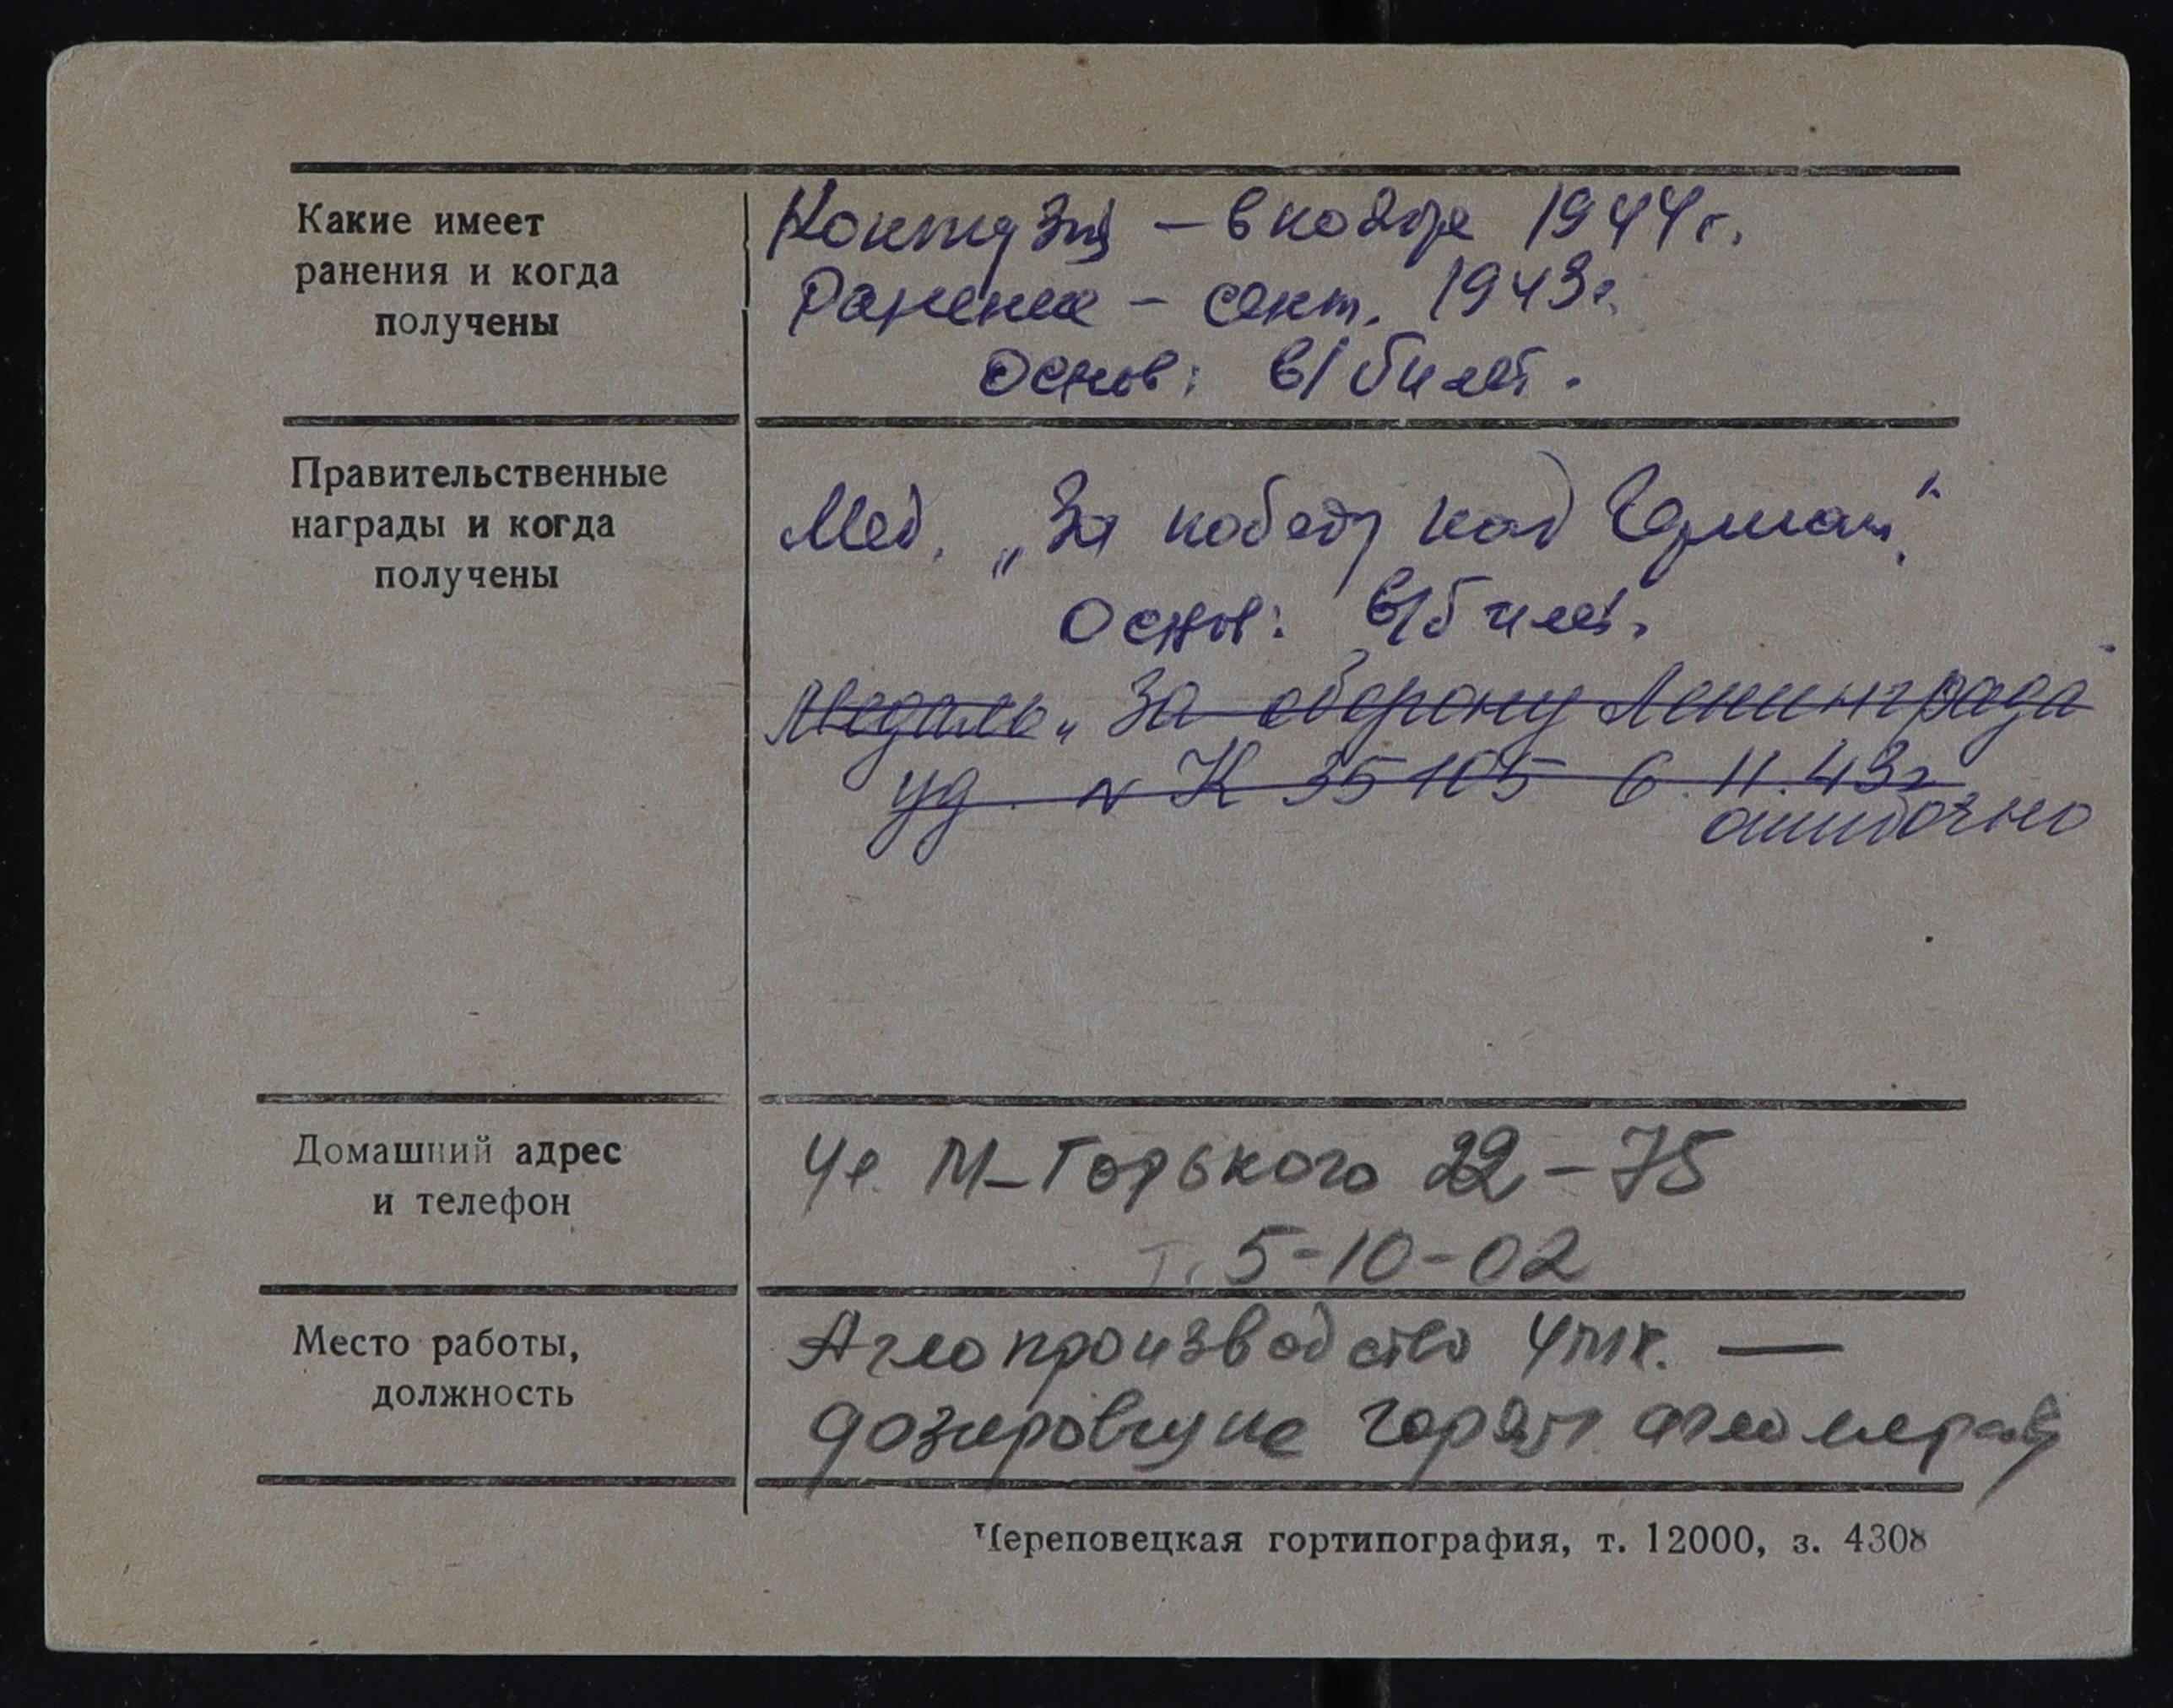 Какие имеет
ранения и когда
получены
Контузия – в ноябре 1944 г.
Ранение – сент. 1943 г.
Основ: в/билет.
Правительственные
награды и когда
получены
Мед. „За победу над Герман."
Основ: в/билет.
Медаль „За оборону Ленинграда
уд. N К 35105 6.11.43г
ошибочно
Домашний адрес
и телефон
Ул. М-Горького 22-75
т. 5-10-02
Место работы,
должность
Аглопроизводство ЧМК. —
дозировщик горяч. агломерата
Череповецкая гортипография, т. 12000, з. 4308